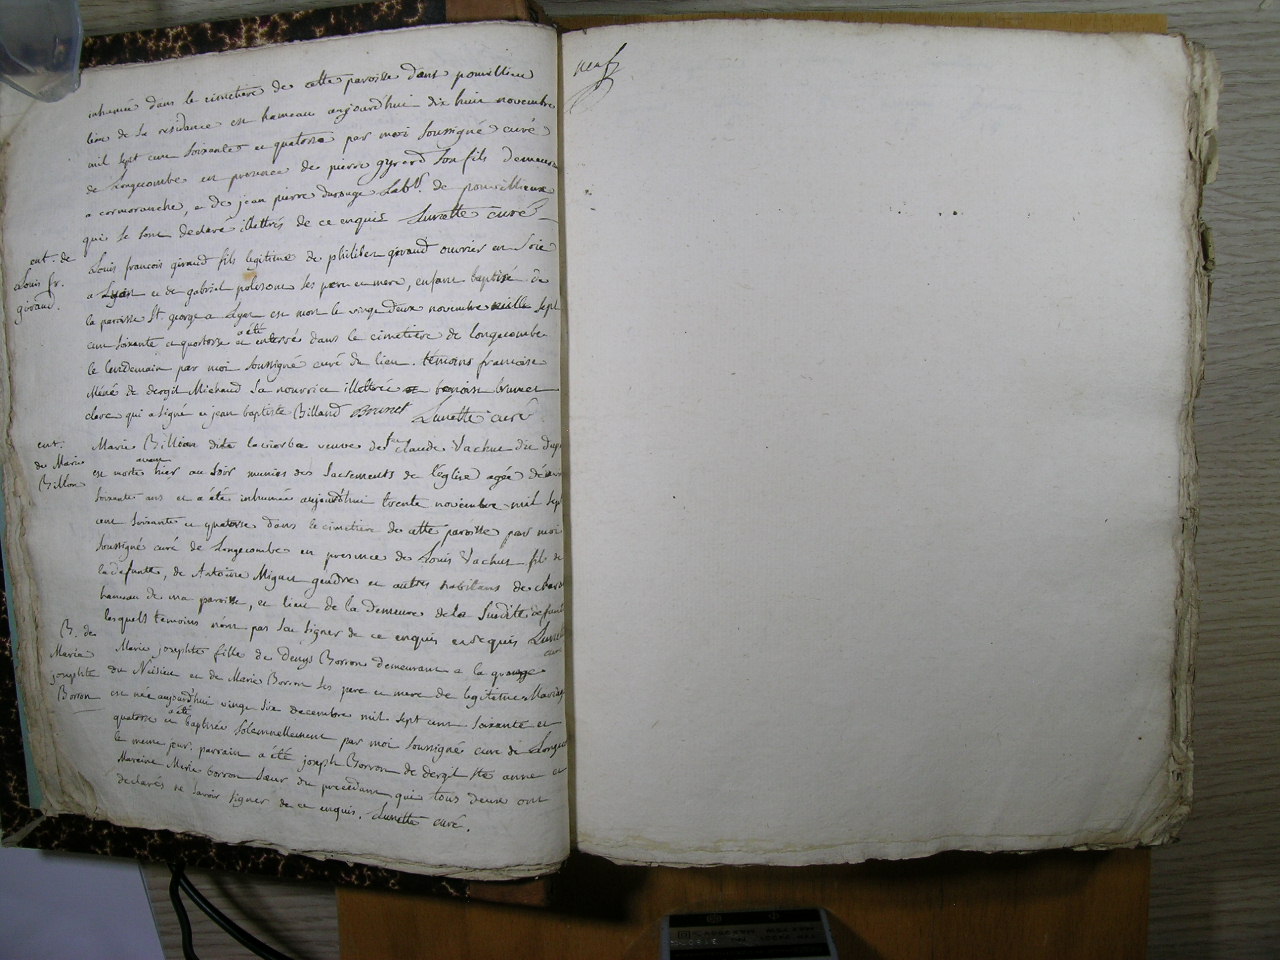 inhumé dans le cimetiere de cette paroisse dans pouvillieu
lieu de sa residance est hameau aujourd'hui dix huit novembre
mil sept cent soixante et quatorse par moi soussigné curé
de Longecombe en presence de pierre gyrerd son fils demeurant
a cormoranche, et de jean pierre durouge Labr. de pouvillieux
qui se sont declaré illettrés de ce enquis Lunette curé
ent. de
Louis fr.
giraud.
Louis francois giraud fils legitime de philibert giraud ouvrier en soie
a Lyon et de gabriel polisson ses pere et mere, enfant baptisé de
la paroisse St george a Lyon est mort le vingt deux novembre mille sept
cent soixante et quatorse et a été enterré dans le cimetière de longecombe
le lendemain par moi soussigné curé du lieu. témoins francoise
Méné de dergit Michaud sa nourrice illettrée et benoist brunet
clerc qui a signé et jean baptiste Billiand Brunet Lunette curé
ent.
de Marie
Billon
Marie Billion dite veuve de feu claude Vachut dit
est morte avant hier au soir munies des sacrements de l'église agée
soixante ans et a été inhumée aujourd'hui trente novembre mil sept
cent soixante et quatorse dans le cimetière de cette paroisse par moi
soussigné curé de Longecombe en presence de Louis Vachut fils de
la defunte, de Antoine Miguet gendre et autres habitans de
hameau de ma paroisse, et lieu de la demeure de la susdite defunte
lesquels temoins n'ont pas su signer de ce enquis et requis Lunette
curé
B. de
Marie
josephte
Borron
Marie josephte fille de denys Borron demeurant a la grange
du Nisieu et de Marie Borron ses pere et mere de legitime Mariage
est née aujourd'hui vingt six decembre mil sept cent soixante et
quatorse et a été baptisée solemnellement par moi soussigné curé de Longec
le meme jour. parrain a été joseph Borron de dergit ste anne et
Maraine Marie borron sœur du precedant qui tous deux ont
declarés ne savoir signer de ce enquis. Lunette curé.
neuf